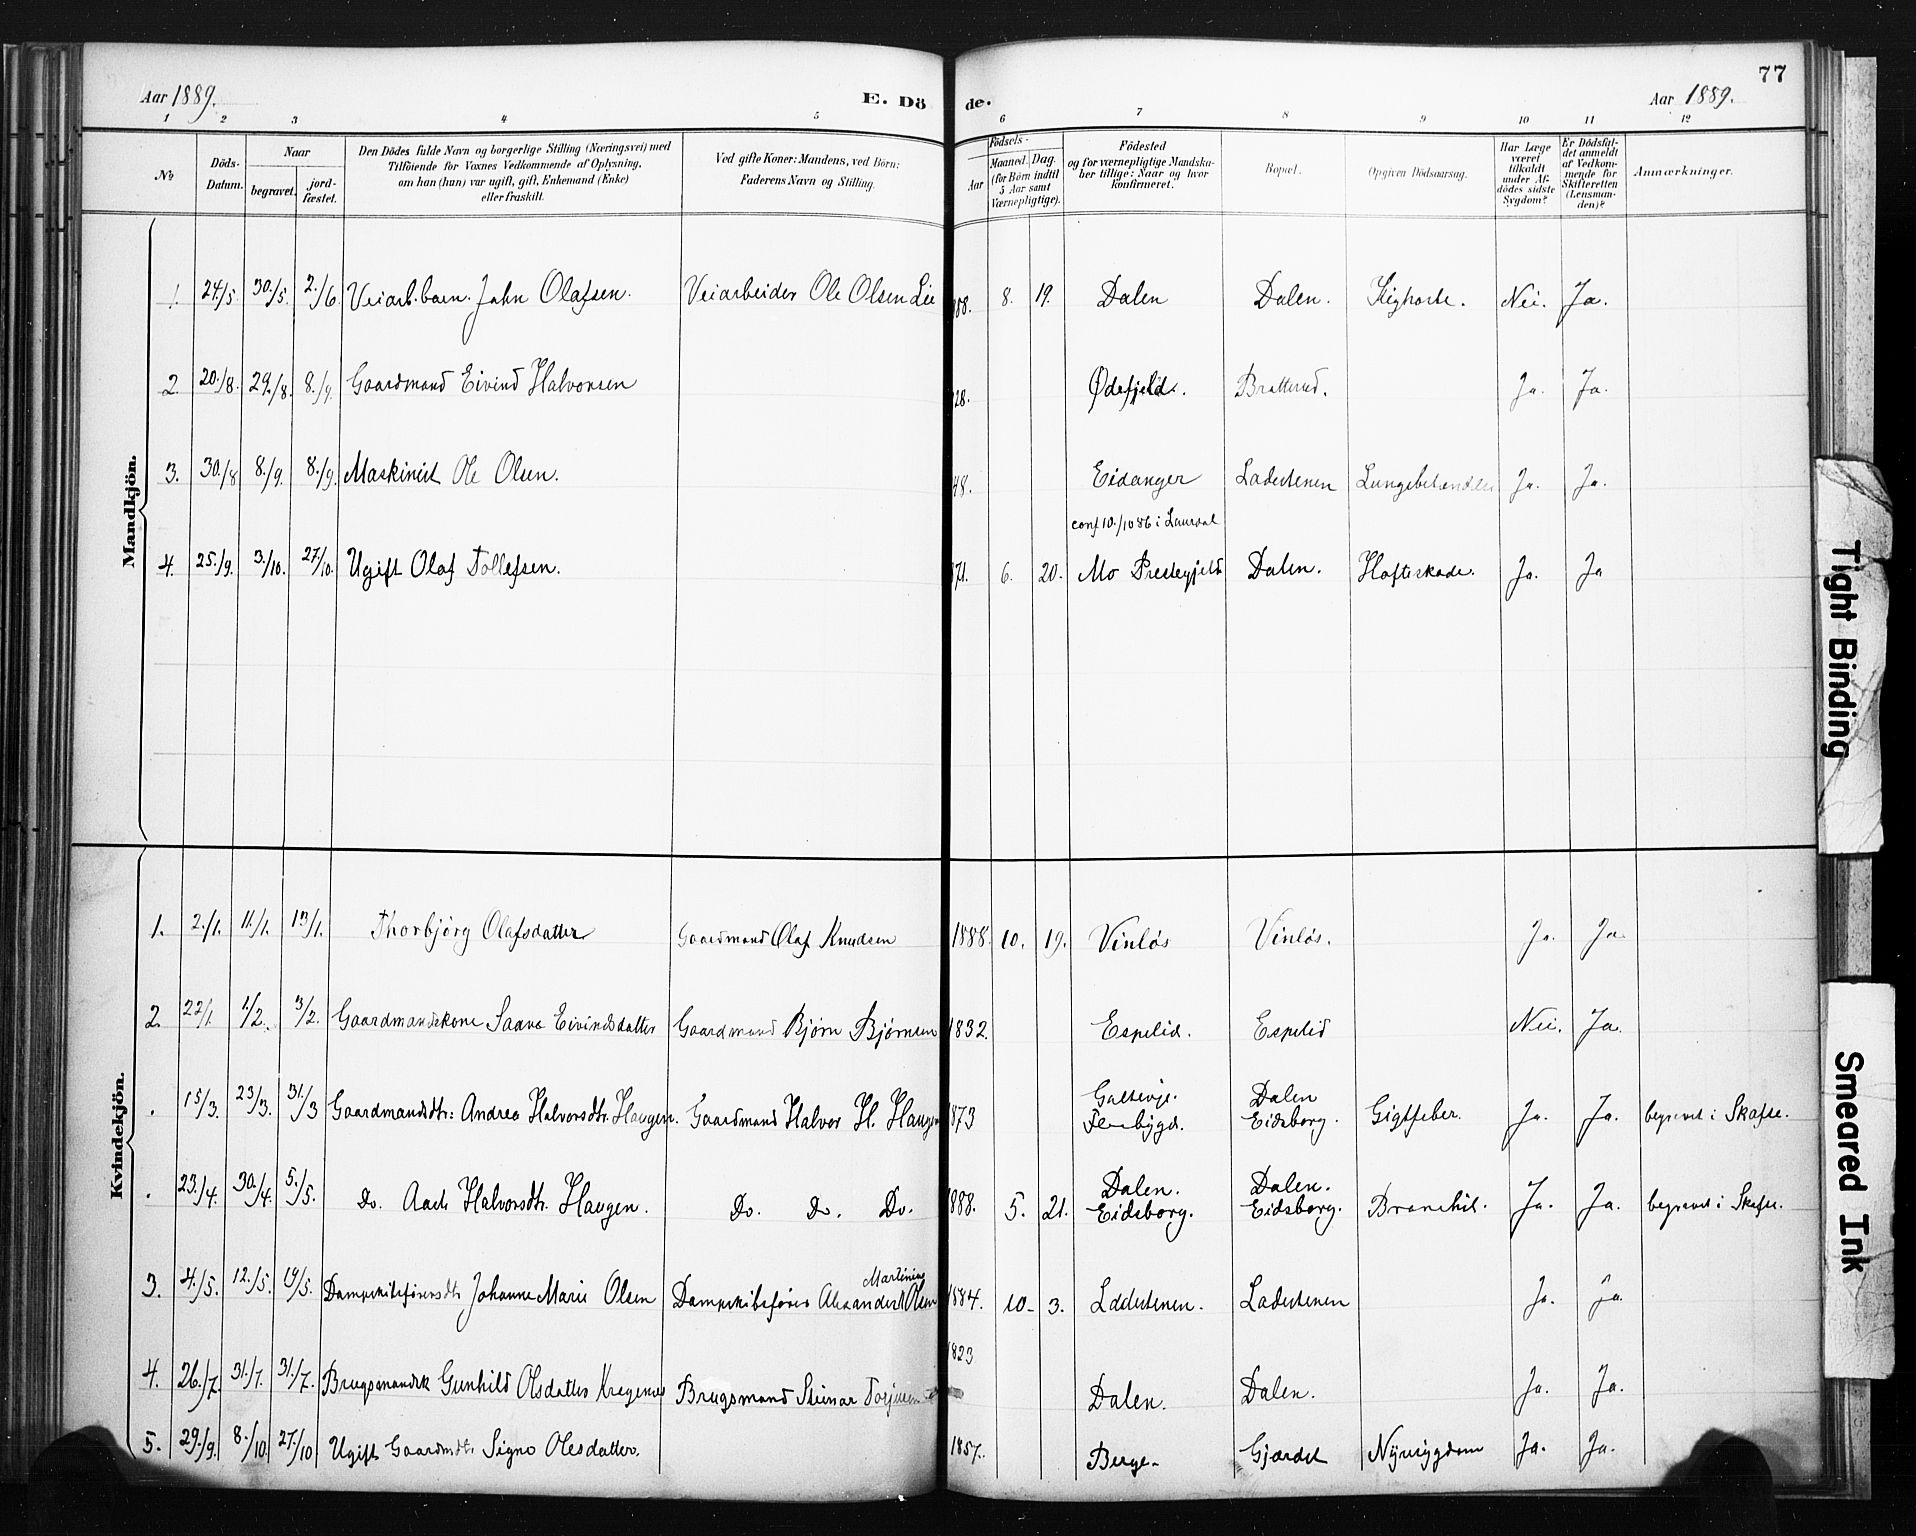 77
Aar 1889. E. Dö de. Aar 1889.
1 2 3 4 5 6 7 8 9 10 11 12
No
Döds-Datum.
Naar
begravet.
jord-fæstet.
Den Dödes fulde Navn og borgerlige Stilling (Næringsvei) med
Tilföiende for Voxnes Vedkommende af Oplysning,
om han (hun) var ugift, gift, Enkemand (Enke)
eller fraskilt.
Ved gifte Koner: Mandens, ved Börn:
Faderens Navn og Stilling.
Födsels-
Aar
Maaned. Dag.
(for Börn indtil
5 Aar samt
Værnepligtige).
Födested
og for værnepligtige Mandska-
ber tillige: Naar og hvor
konfirmeret.
Bopæl.
Opgiven Dödsaarsag.
Har Læge
været
tilkaldt
under Af-
dödes sidste
Sygdom?
Er Dödsfal-
det anmeldt
af Vedkom-
mende for
Skifteretten
(Lensman-
den)?
Anmærkninger.
Mandkjön.
1. 24./5. 30./5. 2./6. Veiarb.barn. John Olafsen. Veiarbeider Ole Olsen Lie 888. 8. 19. Dalen Dalen. Kighoste. Nei. Ja.
2. 20./8. 29./8. 8./9. Gaardmand Eivind Halvorsen 28. Ødefjeld. Bratterud. Ja. Ja.
3. 30./8 8./9. 8./9. Maskinist Ole Olsen. 48. Eidanger Ladestenen Ja. Ja.
conf 10./10 86 i Laurdal
4. 25./9. 3./10. 27./10. Ugift Olaf Tollefsen. 871. 6. 20. Mo Prestegjeld Dalen. Hofteskade. Ja. Ja
Kvindekjön.
1. 2./1. 11./1. 13/1. Thorbjörg Olafsdatter Gaardmand Olaf Knudsen 1888. 10. 19. Vinløs Vinløs. Ja. Ja.
2. 22/1. 1/2. 3/2. Gaardmandskone Saave Eivindsdatter Gaardmand Bjørn Bjørnsen 1832. Espelid. Espelid Nei. Ja.
. 15/3. 23/3. 31./3 Gaardmandsdtr: Andrea Halvorsdtr. Haugen. Gaardmand Halvor H. Haugen 1873 Dalen
Eidsborg. Gigtfeber. Ja. Ja. begravet i Skafse.
. 23./4. 30./4. 5./5. Do. Aase Halvorsdtr. Haugen. Do. Do. Do. 1888. 5. 21. Dalen.
Eidsborg. Dalen.
Eidsborg. Bronchit. Ja. Ja. begravet i Skafse.
3. 4./5. 12./5. 19/5. Dampskibsførersdtr Johanne Marie Olsen Dampskibsfører Alexander Martinius Olsen 1884. 10. 3. Ladestenen. Ladestenen Ja. Ja.
4. 26./7. 31./7. 31./7. Brugsmandsk Gunhild Olsdatter Brugsmand Steinar 1823 Dalen. Dalen. Ja. Ja.
5. 29./9. 8./10. 27./10 Ugift Gaardmdtr. Signe Olesdatter. 1857. Berge. Gjærdet Nyresygdom Ja. Ja.
Tight Binding
Smeared Ink